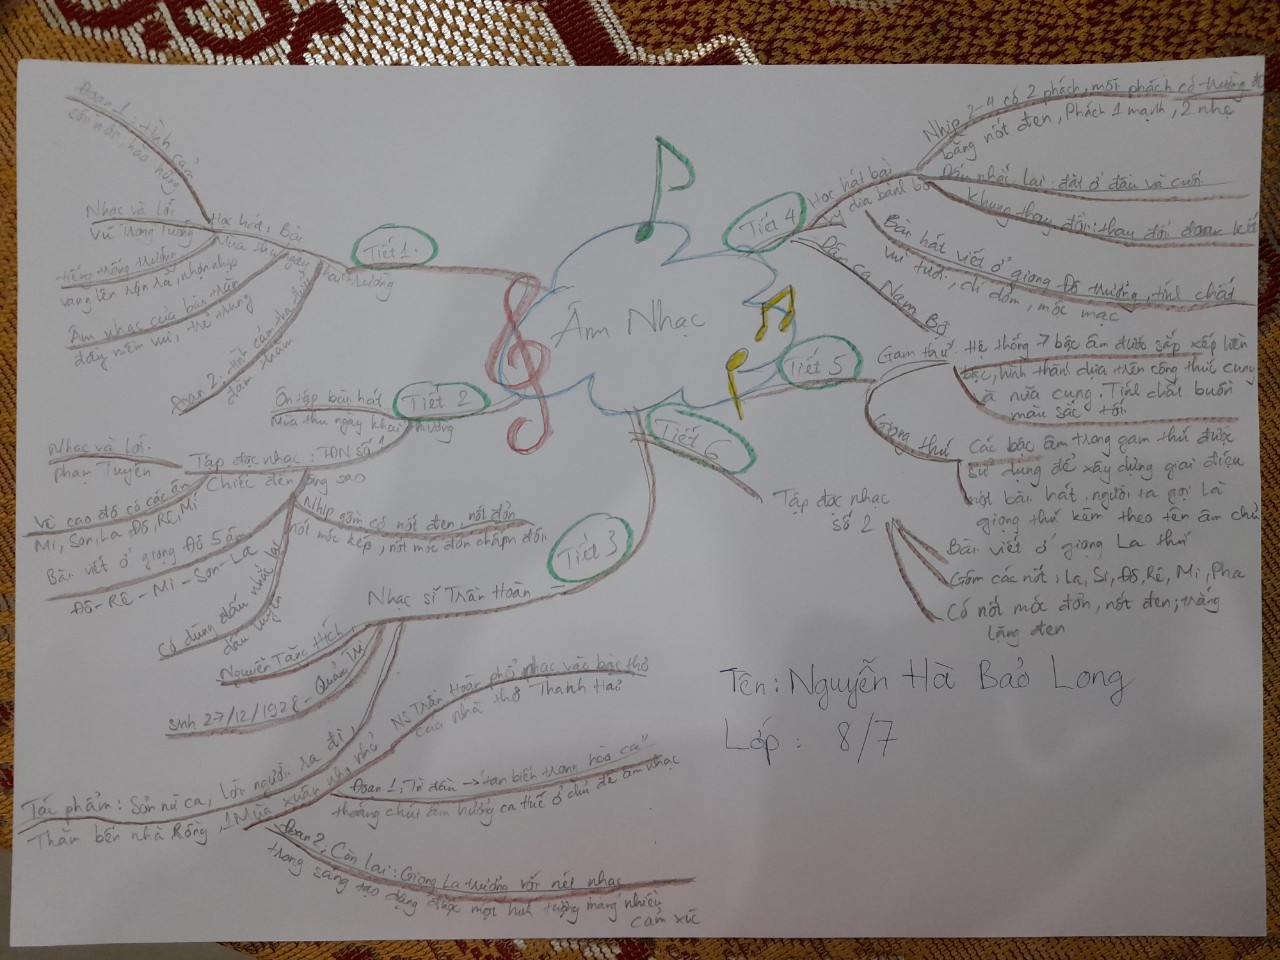 Âm Nhạc
Tiết 1.
Học hát: Bài
Mùa thu ngày khai trường
Đoạn 1: tình cảm
sôi nổi, hào hùng
Nhạc và lời
Vũ Trọng Tường
tiếng trống trường
vang lên rộn rã, nhộn nhịp
Âm nhạc của bài tràn
đầy niềm vui, trẻ trung
Đoạn 2: tình cảm tha thiết
Tiết 2
Ôn tập bài hát
Mùa thu ngày khai trường
Tập đọc nhạc: TĐN số 1
Chiếc đèn ông sao
Nhạc và lời.
Phạm Tuyên
Về cao độ có các âm
Mi, Son, La, Đô, Rê, Mi
Bài viết ở giọng Đô 5 âm
Đô - Rê - Mi - Son - La
Có dùng dấu nhắc lại,
dấu luyến
Nhịp gồm có nốt đen, nốt đơn
nốt móc kép, nốt móc đơn chấm dôi
Tiết 3
Nhạc sĩ Trần Hoàn
Nguyễn Tăng Hích
sinh 27/12/1928 - Quảng Trị
Tác phẩm: Sơn nữ ca, Lời người ra đi,
Thăm bến nhà Rồng, 1 Mùa xuân nho nhỏ
Ns Trần Hoàn phổ nhạc vào bài thơ
của nhà thơ Thanh Hải
Đoạn 1: Từ đầu → "tan biến trong hòa ca"
thoáng chút âm hưởng ca Huế ở chủ đề âm nhạc
Đoạn 2: Còn lại: Giọng La trưởng với nét nhạc
trong sáng tạo dựng được một hình tượng mang nhiều
cảm xúc
Tiết 4
Học hát bài
Lý dĩa bánh bò
Nhịp 2-4 có 2 phách, mỗi phách có trường độ
bằng nốt đen, Phách 1 mạnh, 2 nhẹ
Dấu nhắc lại: đặt ở đầu và cuối
Khung thay đổi: thay đổi đoạn kết
Bài hát viết ở giọng Đô trưởng, tính chất
vui tươi, dí dỏm, mộc mạc
Dân ca Nam Bộ
Tiết 5
Gam thứ
Hệ thống 7 bậc âm được sắp xếp liền
bậc, hình thành dựa trên công thức cung
và nửa cung. Tính chất buồn
màu sắc tối
Giọng thứ
Các bậc âm trong gam thứ được
sử dụng để xây dựng giai điệu
một bài hát, người ta gọi là
giọng thứ kèm theo tên âm chủ
Tiết 6
Tập đọc nhạc
số 2
Bài viết ở giọng La thứ
Gồm các nốt: La, Si, Đô, Rê, Mi, Pha
Có nốt móc đơn, nốt đen; trắng
lặng đen
Tên: Nguyễn Hà Bảo Long
Lớp: 8/7